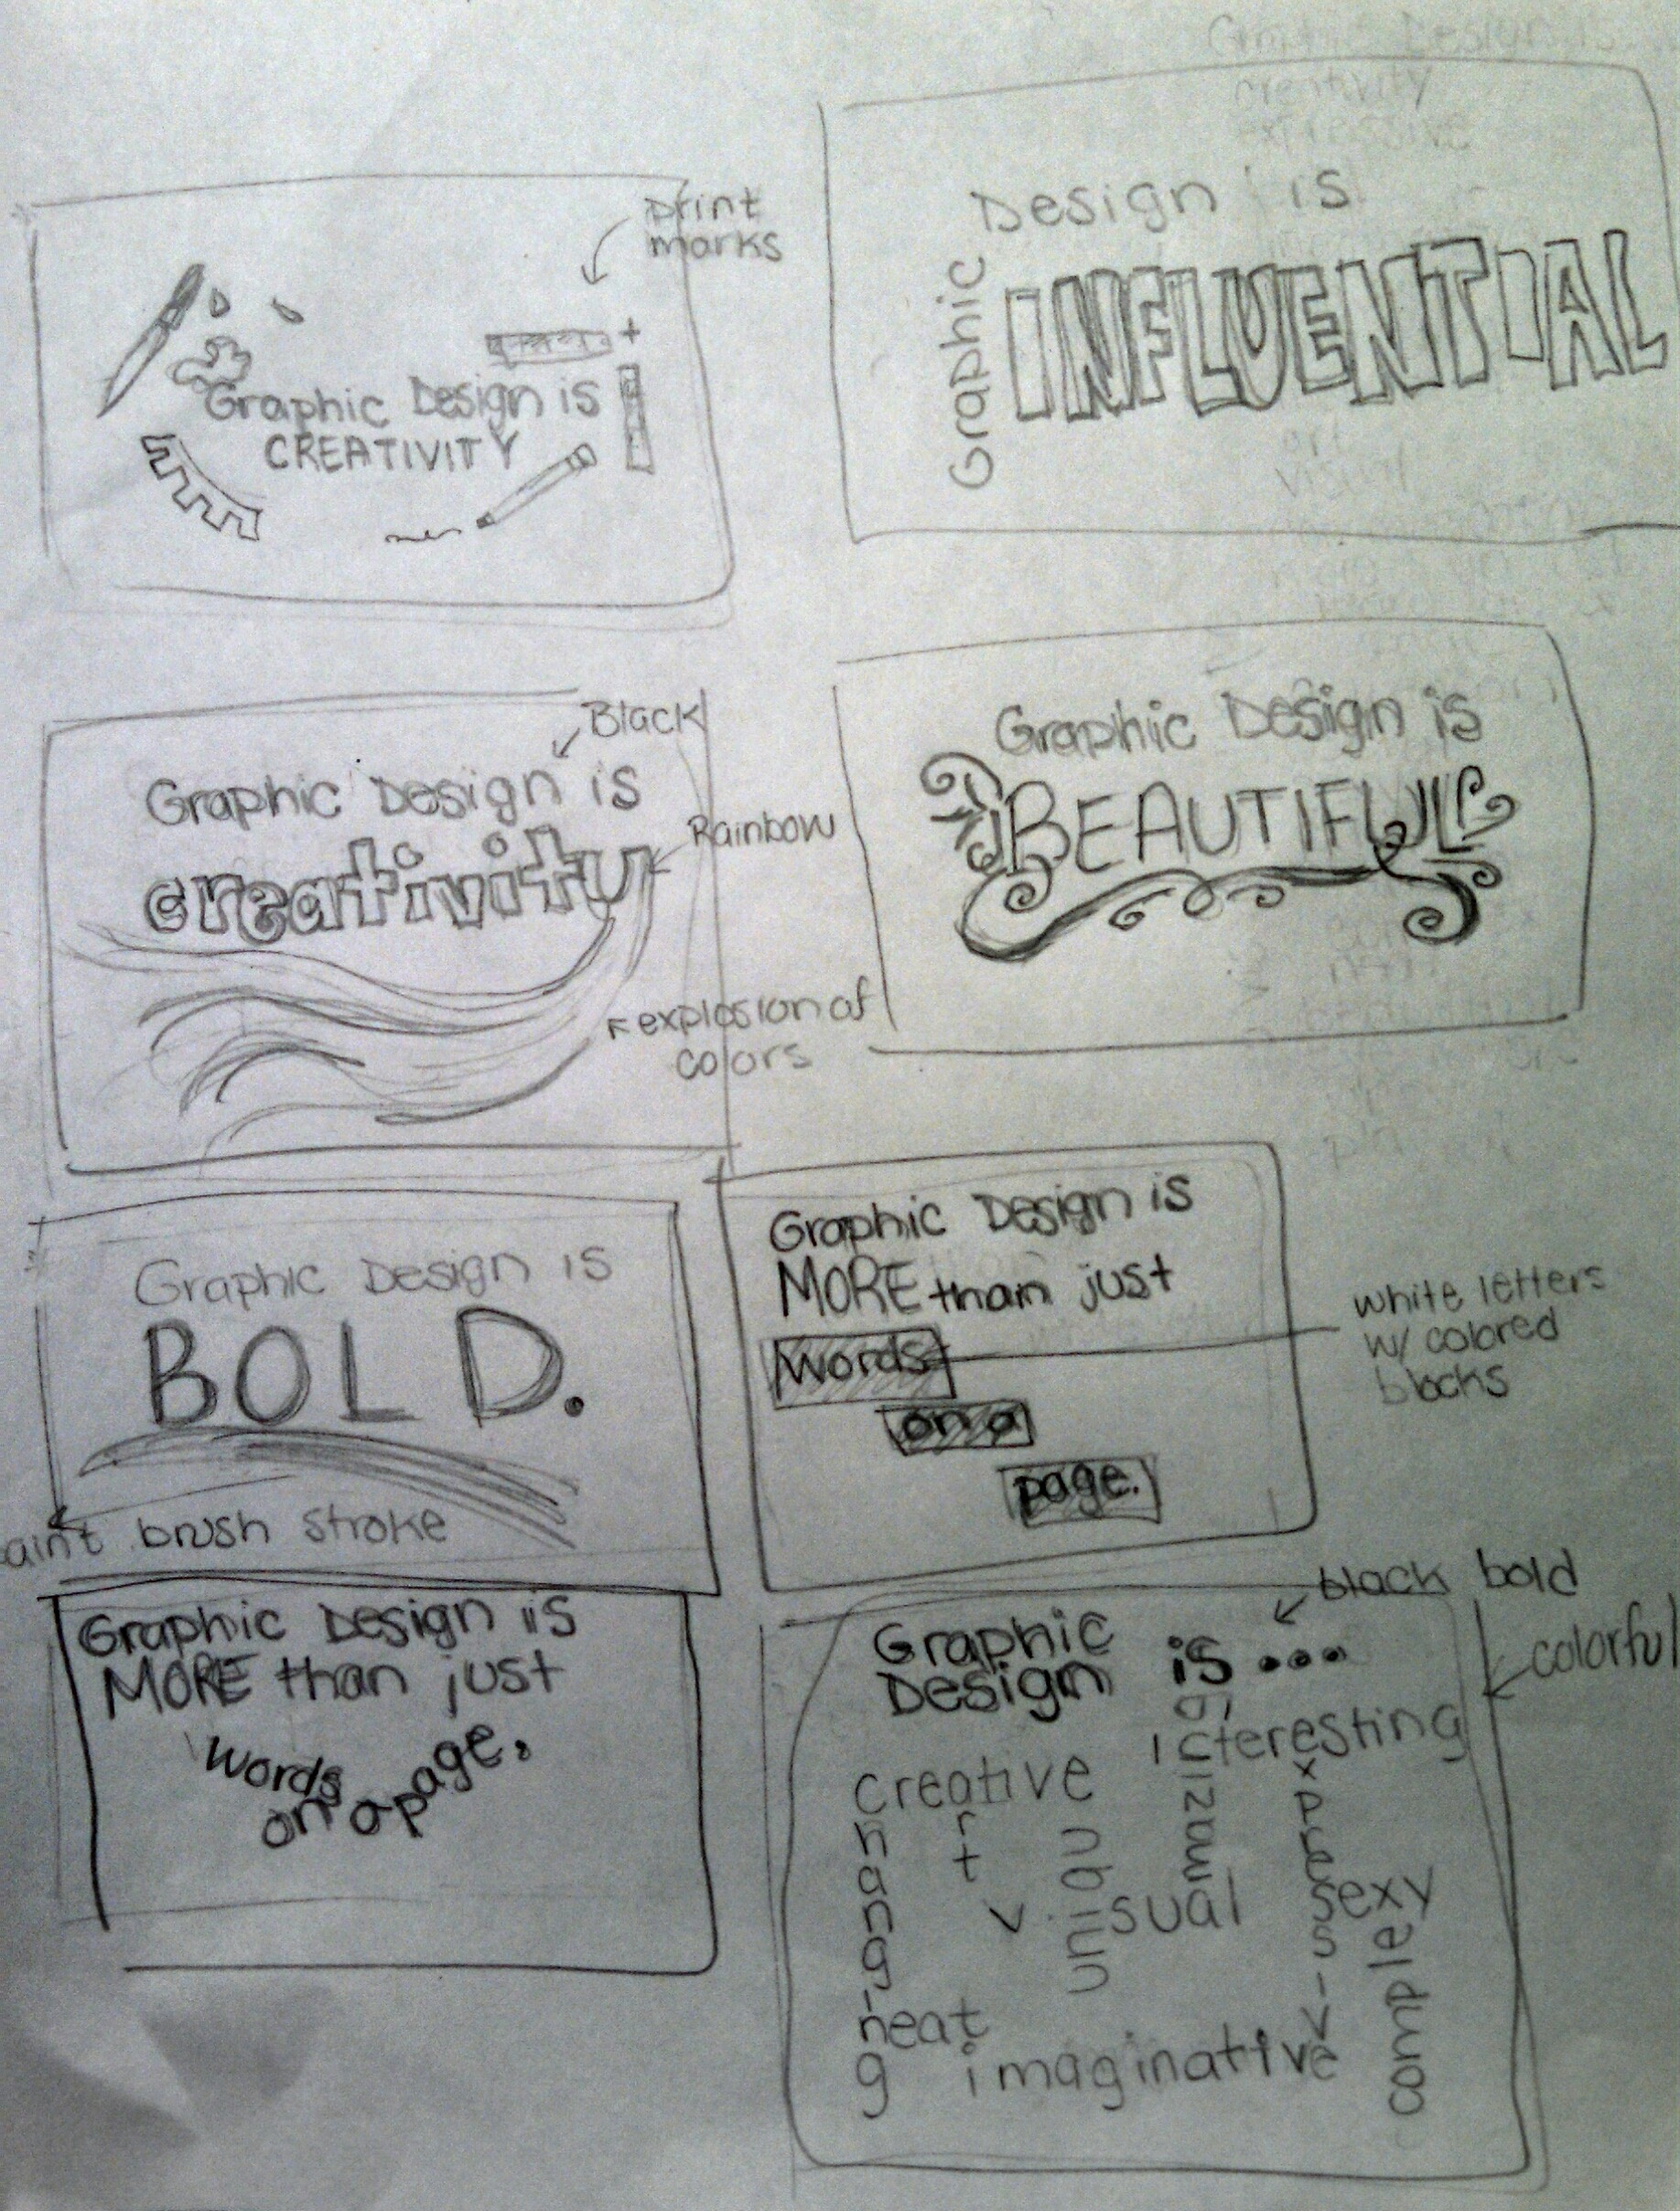 print
marks
Graphic Design is
CREATIVITY
Graphic Design is
creativity
expressive
Design is
Graphic
INFLUENTIAL
art
visual
Black
Graphic Design is
creativity
Rainbow
explosion of
colors
Graphic Design is
BEAUTIFUL
Graphic Design is
BOLD.
aint brush stroke
Graphic Design is
MORE than just
words
on a
page.
white letters
w/ colored
blocks
Graphic Design is
MORE than just
words
on a page.
black bold
colorful
Graphic
Design is...
interesting
creative
art
unique
amazing
expressive
visual
sexy
complex
neat
imaginative